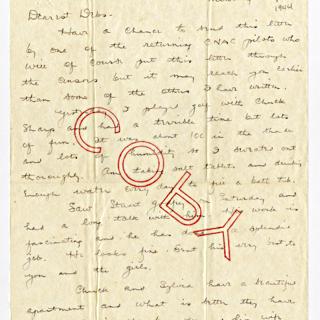 1944
Dearest Debs.
Have a chance to send this letter
by one of the returning CNAC pilots who
will of course put this letter through
the censors but it may reach you earlier
than some of the others I have written.
Yesterday I played golf with Chuck
Sharp and had a terrible time but lots
of fun. It was about 100 in the shade
and lots of humidity so I sweats out
thoroughly. Am taking salt tablets and drinking
enough water every day to fill a bath tub.
Saw Stuart Saturday and
had a long talk with him. His work is
fascinating and he has done a splendid
job. He looks fine. Sent his very best to
you and the girls.
Chuck and Sylvia have a beautiful
apartment and what is better they have
his wife
COPY